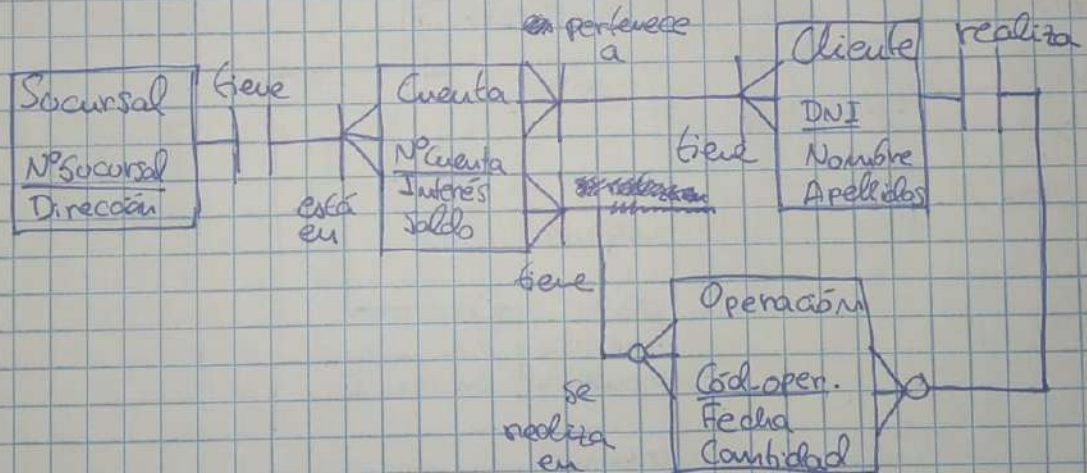 Socursal
NºSocursal
Dirección
tiene
está
en
Cuenta
NºCuenta
Interés
Saldo
pertenece
a
tiene
Cliente
DNI
Nombre
Apellidos
realiza
tiene
se
realiza
en
Operación
Cód.oper.
Fecha
Cantidad